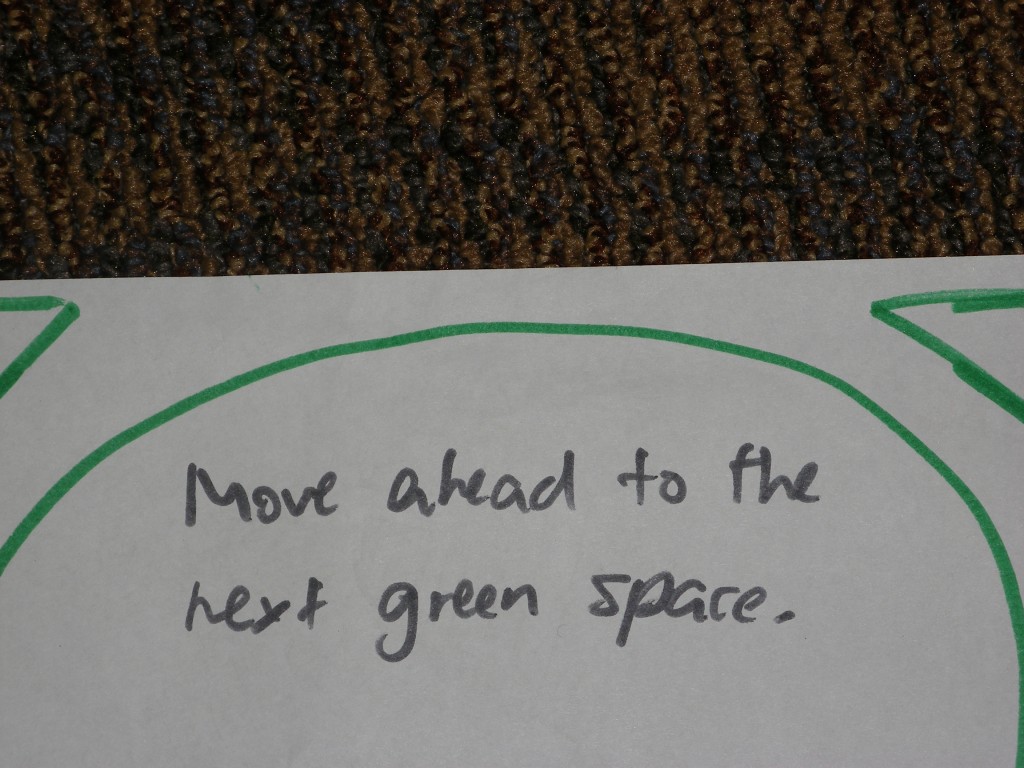 Move ahead to the
next green space.